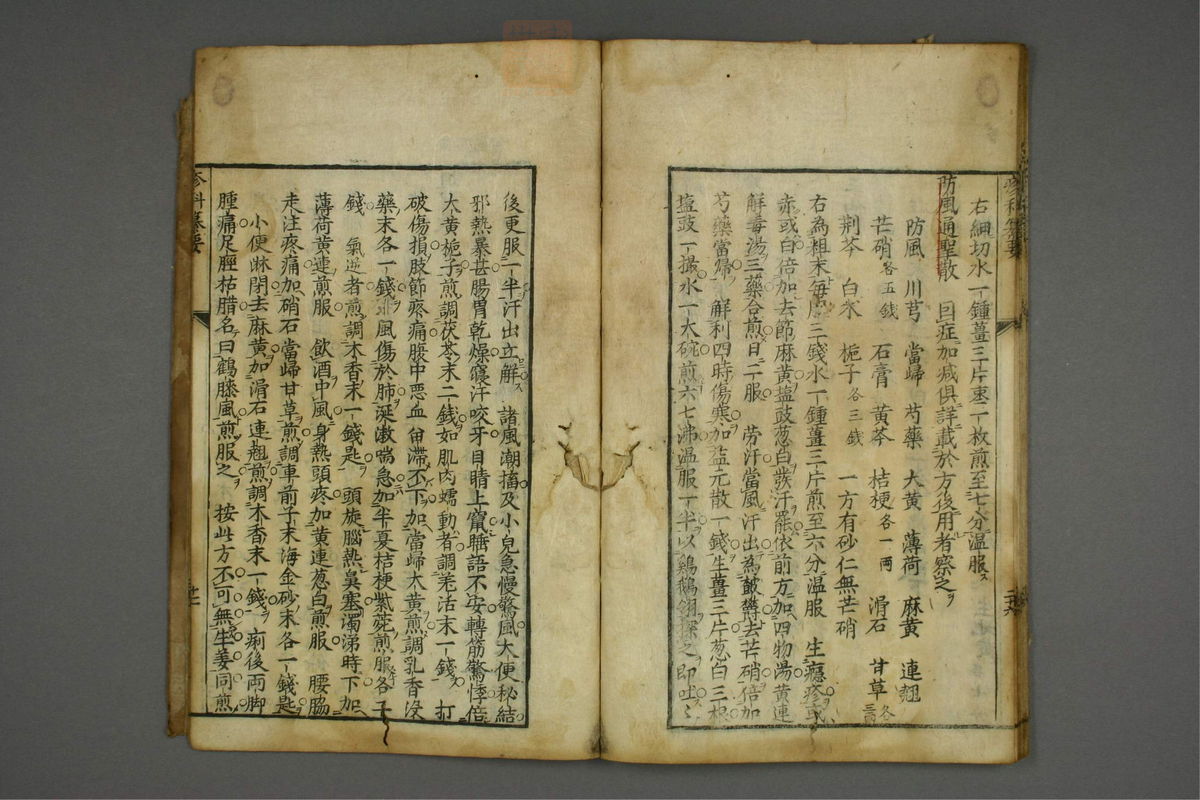 右細切水一鍾薑三片棗一枚煎至七分温服
防風通聖散 因症加减俱詳載於方後用者察之
防風 川芎 當歸 芍藥 大黃 薄荷 麻黃 連翹
芒硝各五錢 石膏 黃芩 桔梗各一兩 滑石 甘草各三兩
荆芥 白朮 梔子各三錢 一方有砂仁無芒硝
右為粗末每服三錢水一鍾薑三片煎至六分温服 生癮疹或
赤或白倍加去節麻黃塩豉葱白發汗罷依前方加四物湯黃連
解毒湯三藥合煎日二服 勞汗當風汗出為皶欝去芒硝倍加
芍藥當歸 解利四時傷寒加益元散一錢生薑三片葱白三根
塩豉一撮水一大碗煎六七沸温服一半以鷄鵝翎探之即吐
後更服一半汗出立解 諸風潮搐及小兒急慢驚風大便秘結
邪熱暴甚腸胃乾燥寢汗咬牙目睛上竄睡語不安轉筋驚悸倍
大黃梔子煎調茯苓末二錢如肌肉蠕動者調羌活末一錢 打
破傷損肢節疼痛腹中惡血留滯不下加當歸大黃煎調乳香没
藥末各一錢 風傷於肺涎潄喘急加半夏桔梗紫菀煎服各一
錢 氣逆者煎調木香末一錢匙 頭旋腦熱鼻塞濁涕時下加
薄荷黃連煎服 飲酒中風身熱頭疼加黃連葱白煎服 腰脇
走注疼痛加硝石當歸甘草煎調車前子末海金砂末各一錢匙
小便淋閉去麻黃加滑石連翹煎調木香末一錢 痢後兩脚
腫痛足脛枯腊名曰鶴膝風煎服之 按此方不可無生姜同煎